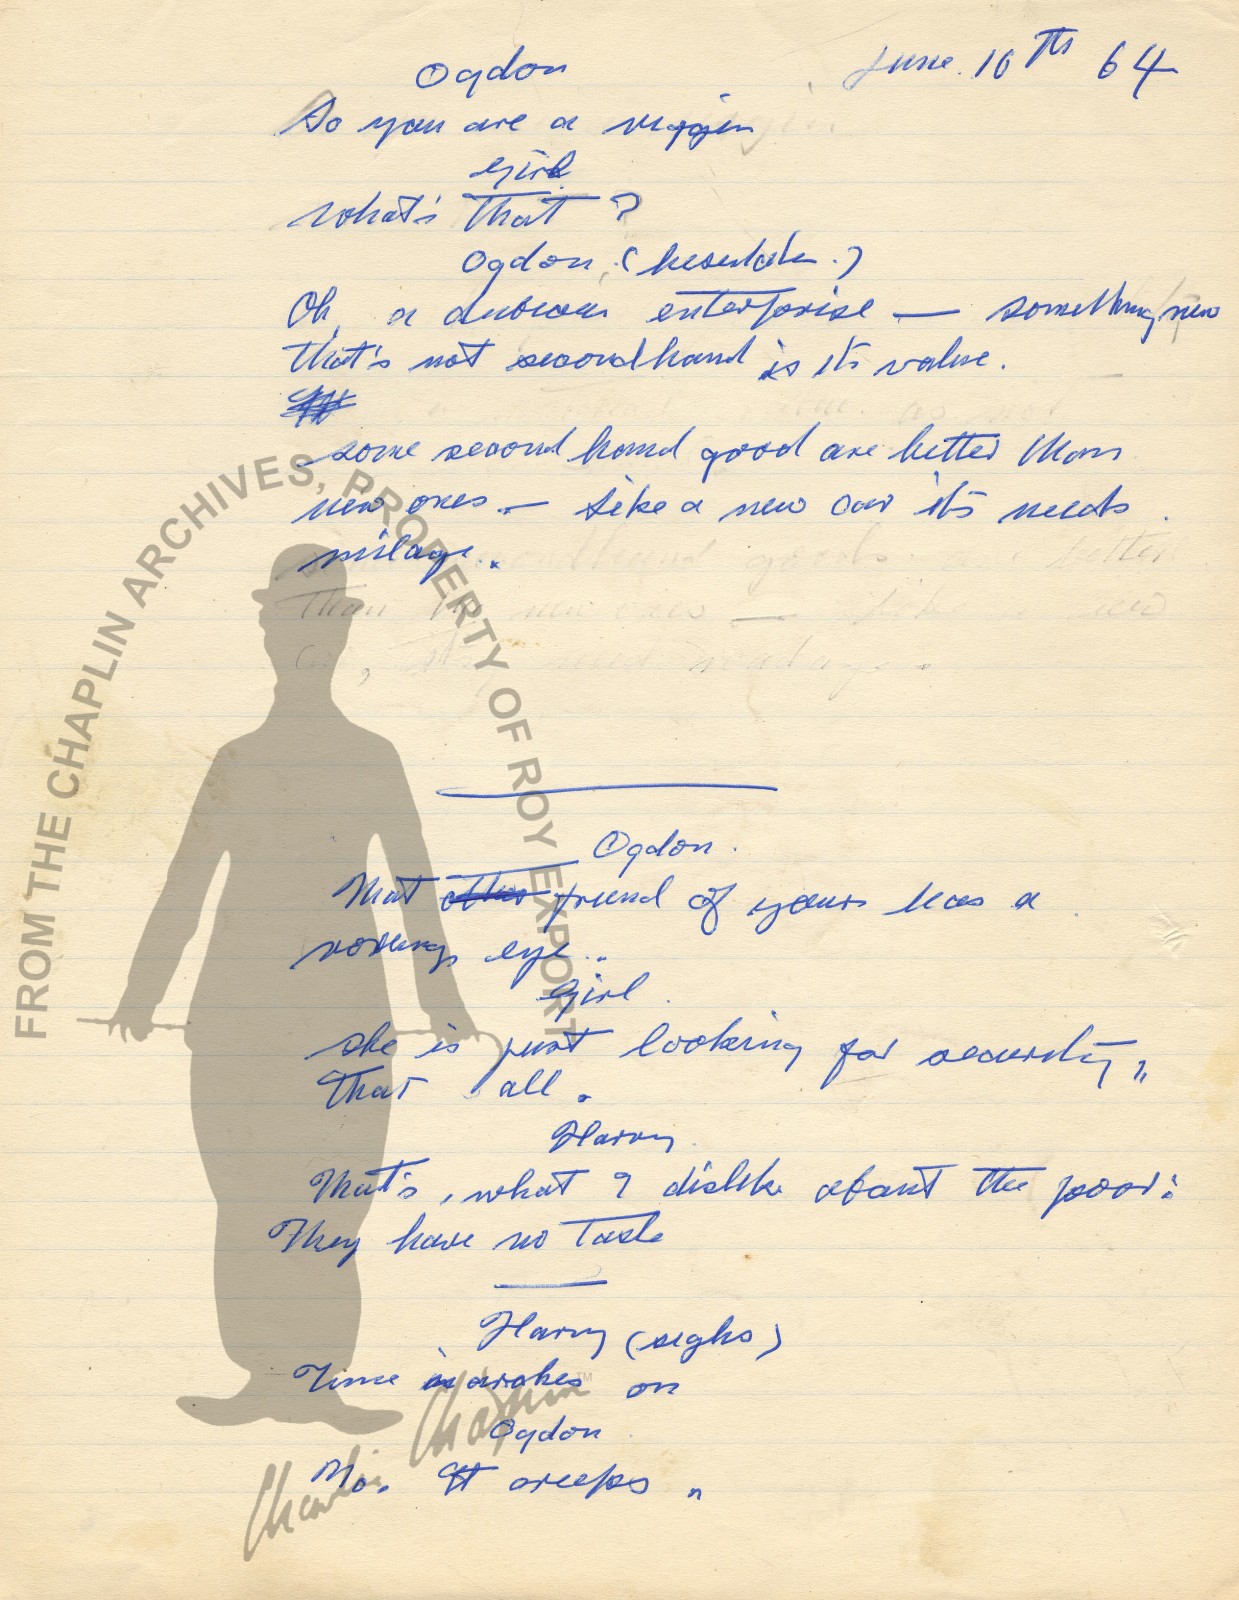 June 10th 64
Ogdon
So you are a virgin
Girl
What's that?
Ogdon (hesitate.)
Oh, a dubious enterprise — something new
that's not secondhand is its value.
some second hand good are better than
new ones — Like a new car it's needs
milage.
Ogdon.
That friend of yours has a
roving eye..
Girl.
She is just looking for security,,
that all.
Harry.
That's, what I dislike about the poor:
They have no taste
Harry (sighs)
Time on
Ogdon.
No. It creeps.
FROM THE CHAPLIN ARCHIVES, PROPERTY OF ROY EXPORT
Charlie Chaplin™